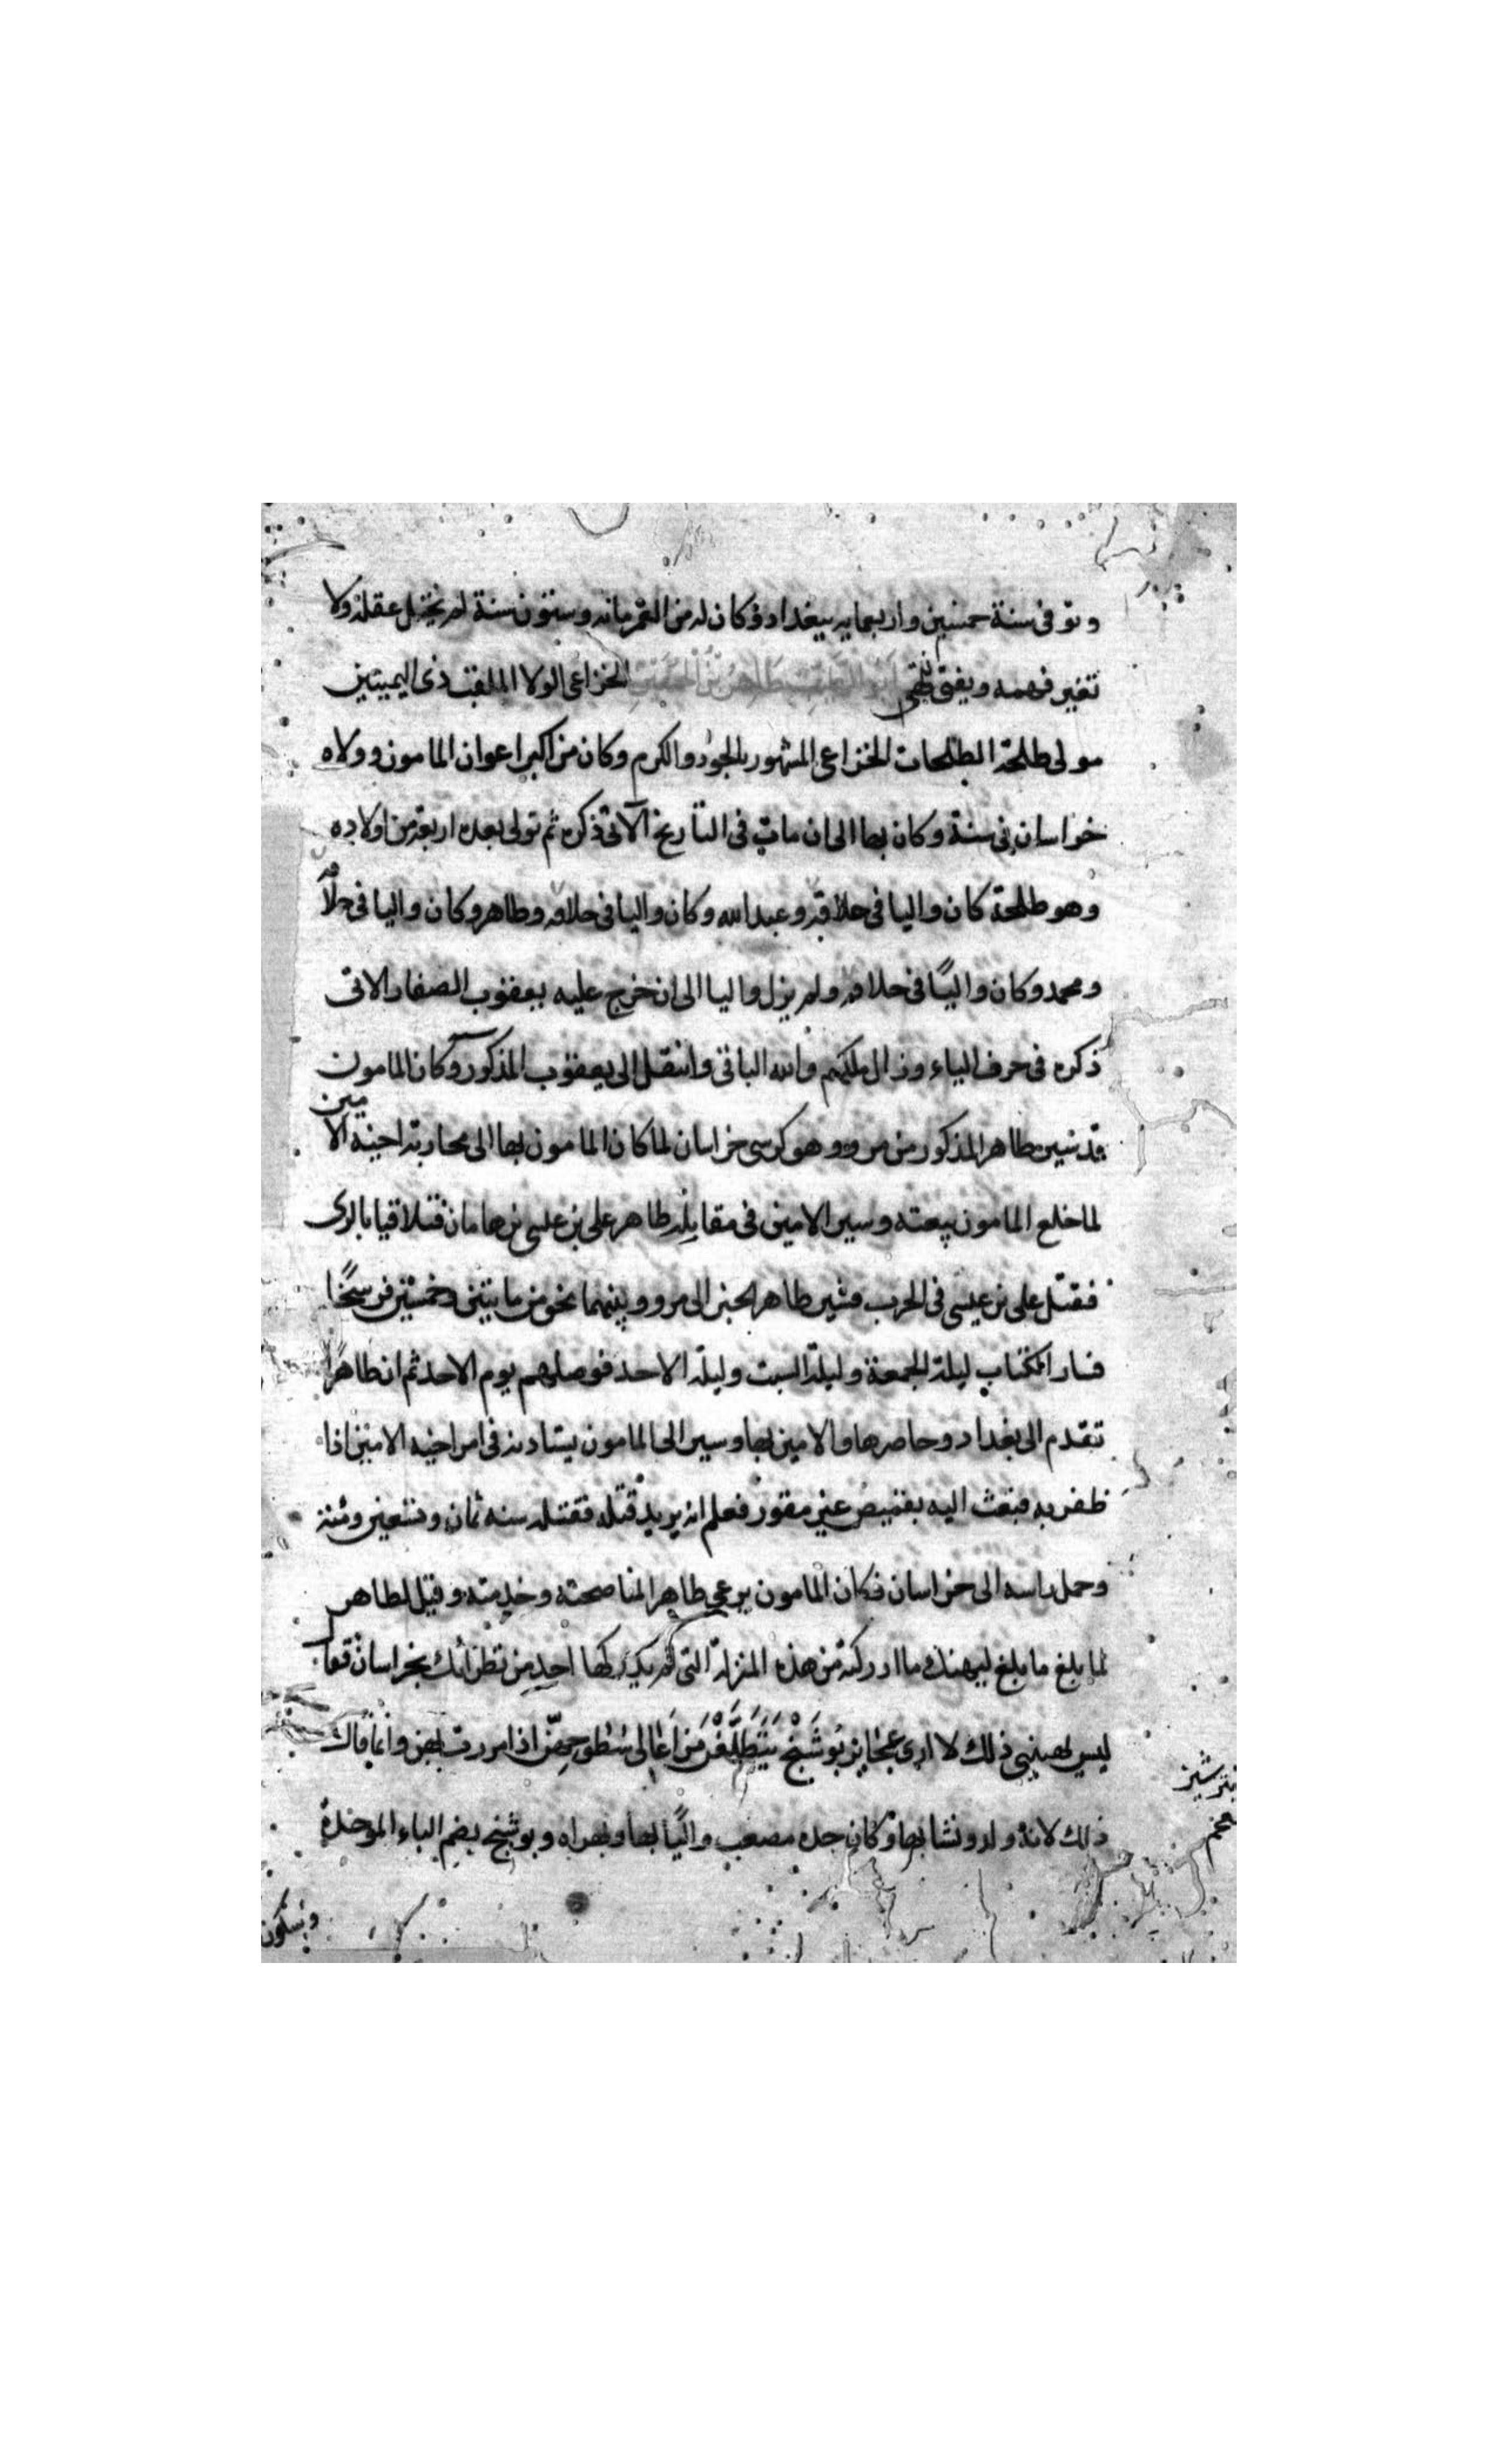 وتوفى سنة خمسين واربعمايه ببغداد وكان له من العمر مائه وستون سنة لم يختل عقله ولا
تغير فهمه ويفتى ابو الطيب طاهر بن الحسين الخزاعى الولا الملقب ذى اليمينين
مولى طلحة الطلحات الخزاعى المشهور بالجود والكرم وكان من اكبر اعوان المامون وولاه
خراسان فى سنة وكان بها الى ان مات فى التأريخ الآتى ذكره ثم تولى بعده اربعة من اولاده
وهو طلحة كان واليا فى خلافته وعبد الله وكان واليا فى خلافه وطاهر وكان واليا فى خلافه
ومحمد وكان واليًا فى خلافه ولم يزل واليا الى ان خرج عليه يعقوب الصفار الاتى
ذكره فى حرف الياء وزال ملكهم والله الباقى وانتقل الى يعقوب المذكور وكان المامون
قد سير طاهر المذكور من مرو وهو كرسى خراسان لما كان المامون بها الى محاربة اخيه الامين
لما خلع المامون بيعته وسير الامين فى مقابلة طاهر على بن عيسى بن هامان فتلاقيا بالرى
فقتل على بن عيسى فى الحرب فسير طاهر الخبر الى مرو وبينهما نحو من مايتين وخمسين فرسخًا
فسار الكتاب ليلة الجمعة وليلة السبت وليلة الاحد فوصلهم يوم الاحد ثم ان طاهرًا
تقدم الى بغداد وحاصرها والامين بها وسير الى المامون يستادنه فى امر اخيه الامين اذا
ظفر به فبعث اليه بقميص غير مقور فعلم انه يريد قتله فقتله سنه ثمان وتسعين ومئة
وحمل راسه الى خراسان فكان المامون يرعى طاهر المناصحته وخدمته وقيل لطاهر
لما بلغ ما بلغ ليهنك ما ادركته من هذه المنزلة التى لم يدركها احد من نظرائك بخراسان فقال
ليس يهنينى ذلك لا ارى عجايز بوشنج يتطلعن من اعالى سطوحهن اذا مررت بهن وانما قال
ذلك لانه ولد ونشا بها وكان جده مصعب واليًا بها وبهراه وبوشنج بضم الباء الموحدة
وسكون